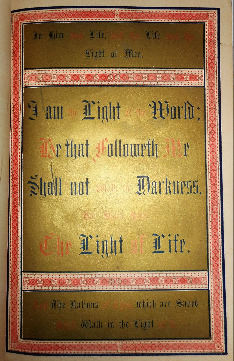 In Him Life, Life
Light of Men,
I am Light World;
He that Followeth Me
Shall not Darkness.
The Light of Life.
The Nations which are Saved
Walk in the Light